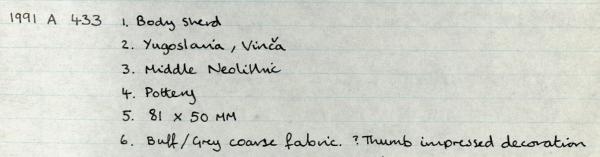 1991 A 433 1. Body Sherd
2. Yugoslavia, Vinča
3. Middle Neolithic
4. Pottery
5. 81 x 50 MM
6. Buff/Grey coarse fabric. ?Thumb impressed decoration